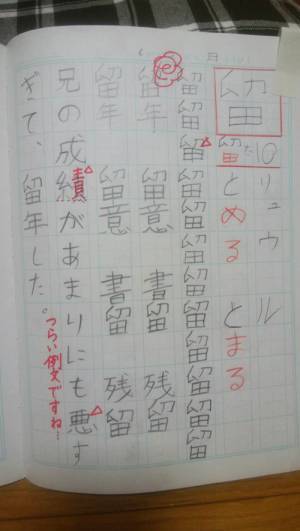 日
留
留 た 10
リュウ ル
とめる とまる
留留留留留留留留留留留留
留年 留意 書留 残留
留年 留意 書留 残留
兄の成績があまりにも悪す
ぎて、留年した。
つらい例文ですね…